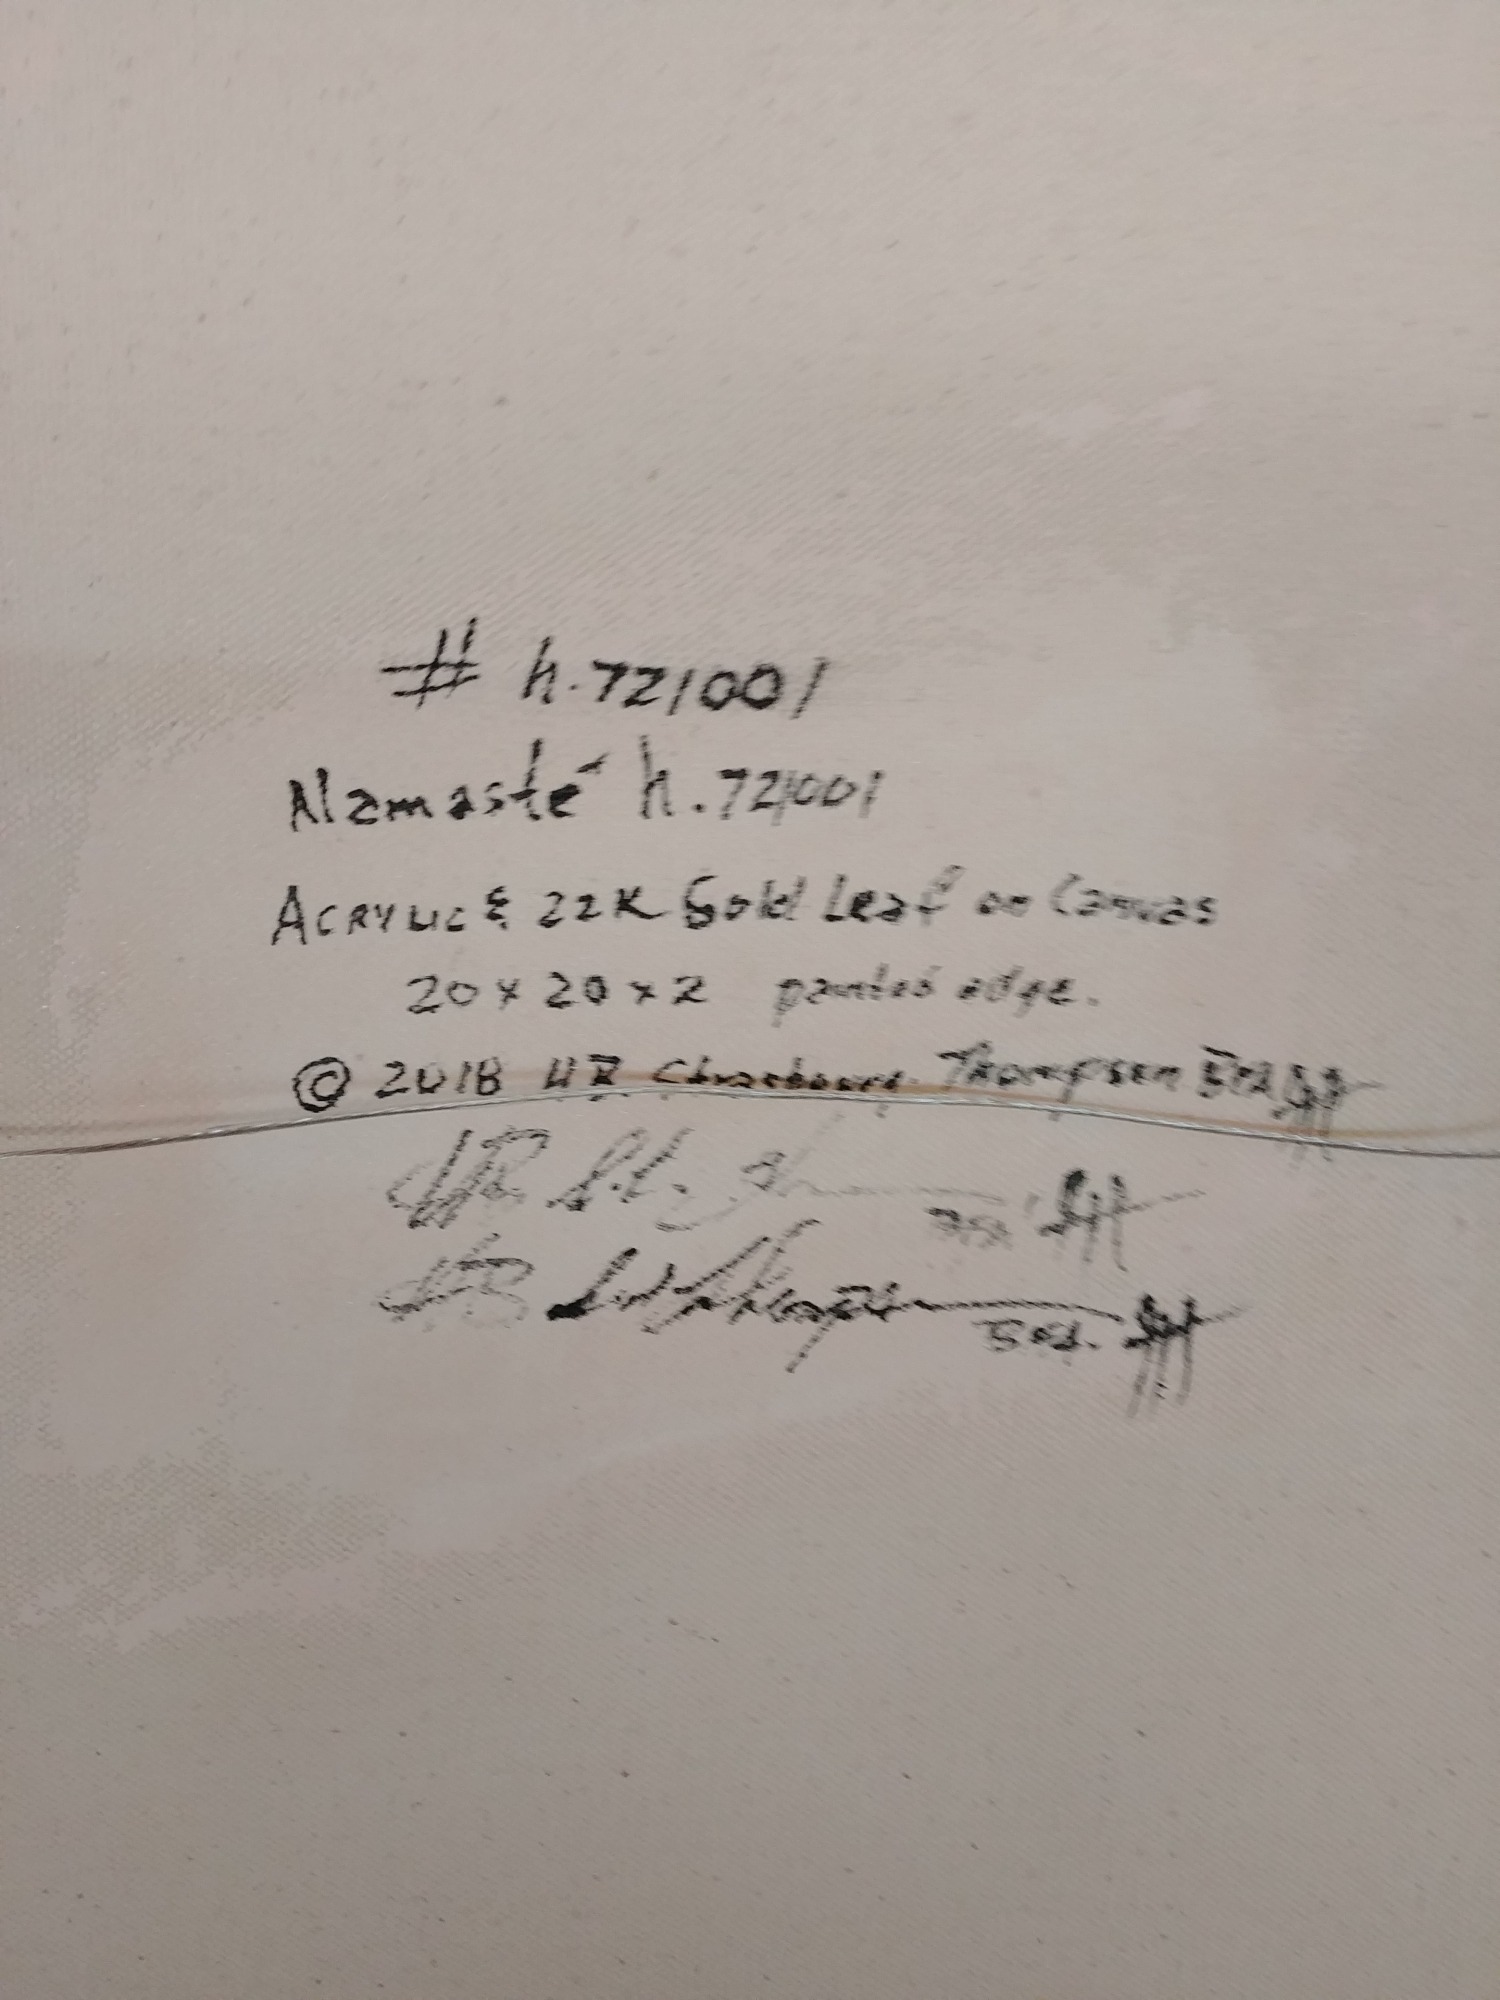 # h.721001
Namasté h.721001
ACRYLIC & 22K Gold Leaf on Canvas
20 x 20 x 2 painted edge.
© 2018 HR Strasbourg Thompsen